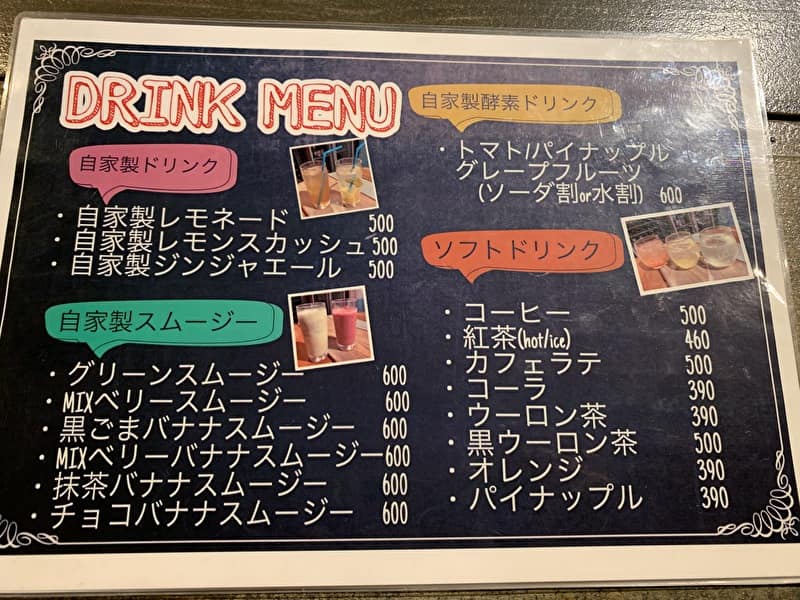 DRINK MENU
自家製ドリンク
・自家製レモネード 500
・自家製レモンスカッシュ 500
・自家製ジンジャエール 500
自家製スムージー
・グリーンスムージー 600
・MIXベリースムージー 600
・黒ごまバナナスムージー 600
・MIXベリーバナナスムージー 600
・抹茶バナナスムージー 600
・チョコバナナスムージー 600
自家製酵素ドリンク
・トマト/パイナップル
グレープフルーツ
(ソーダ割or水割) 600
ソフトドリンク
・コーヒー 500
・紅茶(hot/ice) 460
・カフェラテ 500
・コーラ 390
・ウーロン茶 390
・黒ウーロン茶 500
・オレンジ 390
・パイナップル 390